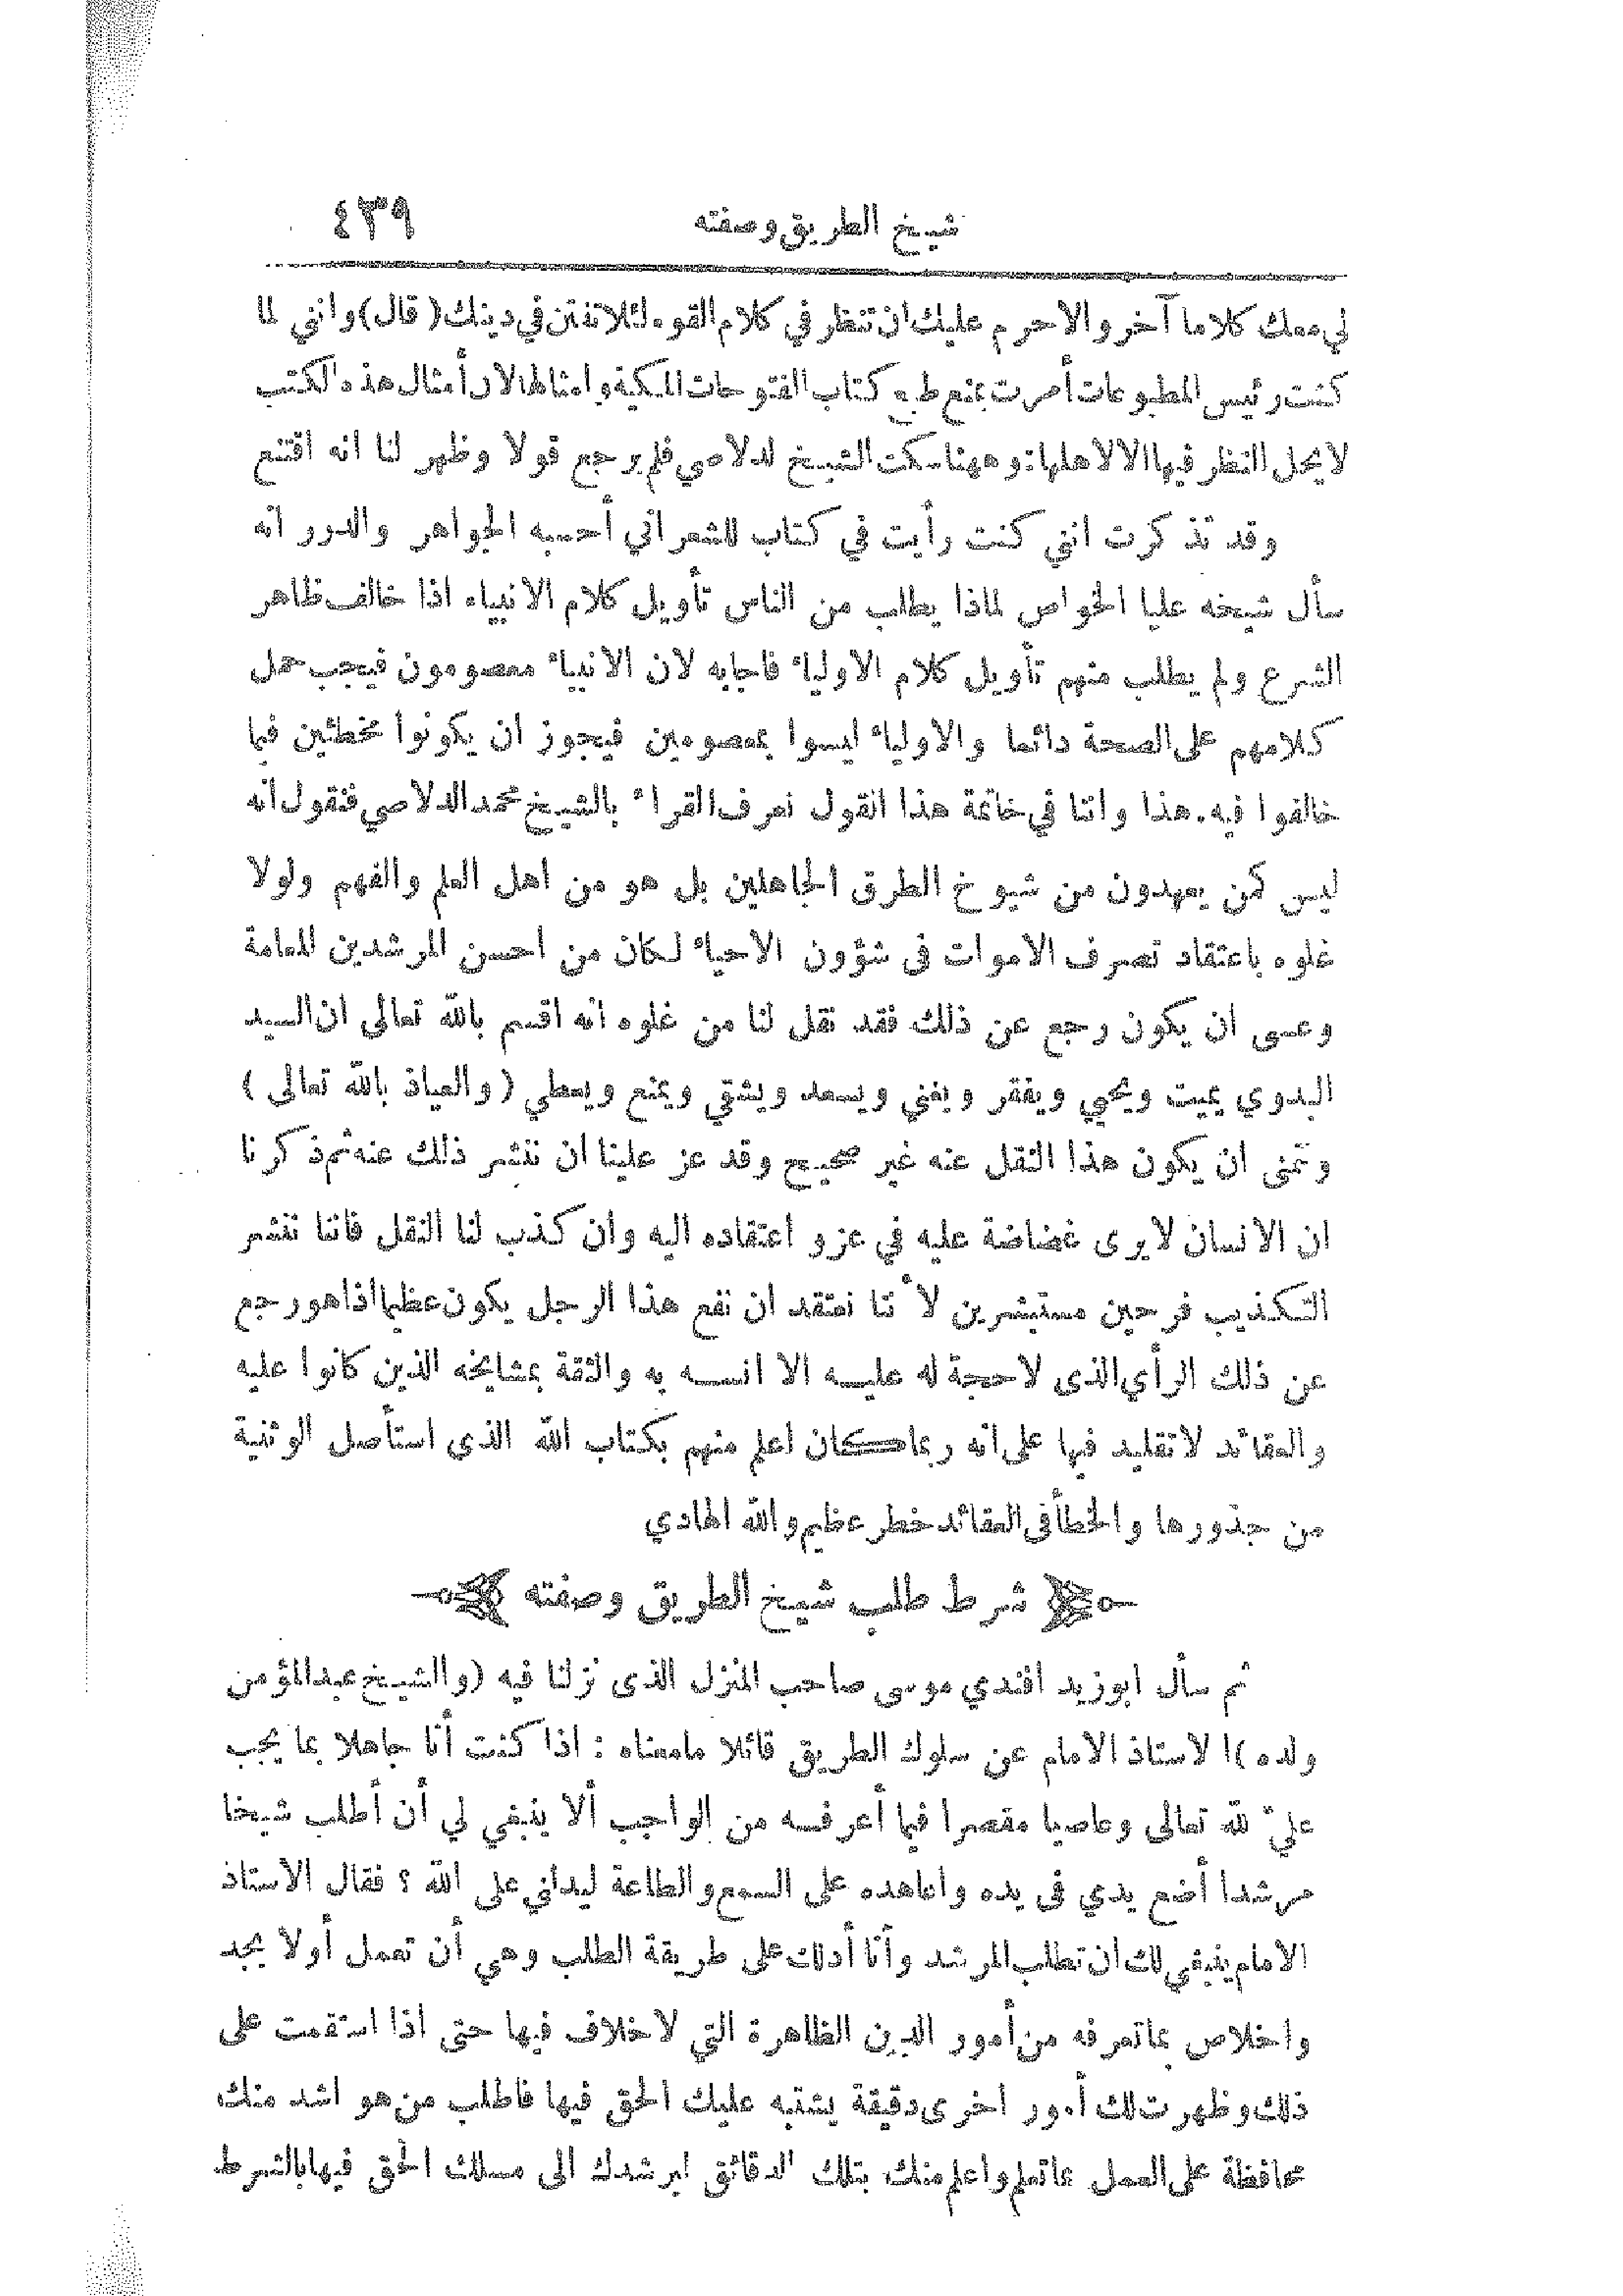 شيخ الطريق وصفته ٤٣٩
لي معك كلاما آخر والا حرم عليك ان تنظر في كلام القوم لئلا تفتن في دينك ( قال ) وانني لما
كنت رئيس المطبوعات أمرت بمنع طبع كتاب الفتوحات المكية وامثالها لان أمثال هذه الكتب
لا يحل النظر فيها الا لاهلها: وههنا سكت الشيخ الدلاصي فلم يرجع قولا وظهر لنا انه اقتنع
وقد تذكرت انني كنت رأيت في كتاب للشعراني أحسبه الجواهر والدرر انه
سأل شيخه عليا الخواص لماذا يطلب من الناس تأويل كلام الانبياء اذا خالف ظاهر
الشرع ولم يطلب منهم تأويل كلام الاولياء فاجابه لان الانبياء معصومون فيجب حمل
كلامهم على الصحة دائما والاولياء ليسوا بمعصومين فيجوز ان يكونوا مخطئين فيما
خالفوا فيه. هذا واننا في خاتمة هذا القول نعرف القراء بالشيخ محمد الدلاصي فنقول انه
ليس كمن يعهدون من شيوخ الطرق الجاهلين بل هو من اهل العلم والفهم ولولا
غلوه باعتقاد تصرف الاموات فى شؤون الاحياء لكان من احسن المرشدين للعامة
وعسى ان يكون رجع عن ذلك فقد نقل لنا من غلوه انه اقسم بالله تعالى ان السيد
البدوي يميت ويحيي ويفقر ويغني ويسعد ويشقي ويمنع ويعطي ( والعياذ بالله تعالى )
ونتمنى ان يكون هذا النقل عنه غير صحيح وقد عز علينا ان ننشر ذلك عنه ثم ذكرنا
ان الانسان لا يرى غضاضة عليه في عزو اعتقاده اليه وان كذب لنا النقل فاننا ننشر
التكذيب فرحين مستبشرين لأ ننا نعتقد ان نفع هذا الرجل يكون عظيما اذا هو رجع
عن ذلك الرأي الذى لا حجة له عليه الا انسه به والثقة بمشايخه الذين كانوا عليه
والعقائد لا تقليد فيها على انه ربما كان اعلم منهم بكتاب الله الذى استأصل الوثنية
من جذورها والخطأ فى العقائد خطر عظيم والله الهادي
شرط طلب شيخ الطريق وصفته
ثم سأل ابو زيد افندي موسى صاحب المنزل الذى نزلنا فيه ( والشيخ عبد المؤمن
ولده ) الاستاذ الامام عن سلوك الطريق قائلا ما معناه : اذا كنت أنا جاهلا بما يجب
عليّ لله تعالى وعاصيا مقصرا فيما أعرفه من الواجب ألا ينبغي لي أن أطلب شيخا
مرشدا أضع يدي فى يده واعاهده على السمع والطاعة ليدلني على الله ؟ فقال الاستاذ
الامام ينبغي لك ان تطلب المرشد وأنا أدلك على طريقة الطلب وهي أن تعمل أولا بجد
واخلاص بما تعرفه من أمور الدين الظاهرة التي لا خلاف فيها حتى اذا استقمت على
ذلك وظهرت لك أمور اخرى دقيقة يشتبه عليك الحق فيها فاطلب من هو اشد منك
محافظة على العمل بما تعلم واعلم منك بتلك الدقائق ليرشدك الى مسلك الحق فيها بالشرط